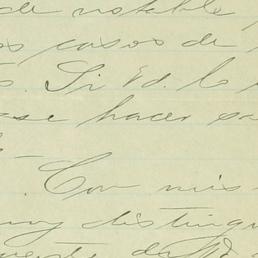 de notable
os casos de
. Si Vd. lo
ase hacer sa
Con mis
muy distingu